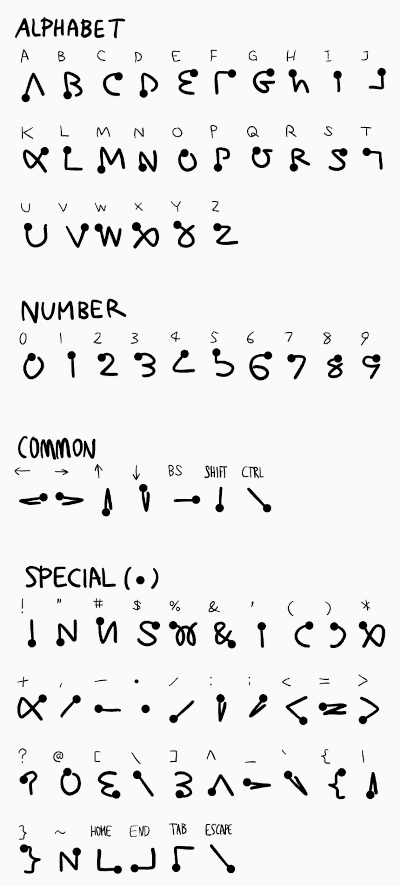 ALPHABET
A B C D E F G H I J
K L M N O P Q R S T
U V W X Y Z
NUMBER
0 1 2 3 4 5 6 7 8 9
COMMON
← → ↑ ↓ BS SHIFT CTRL
SPECIAL (•)
! " # $ % & ' ( ) *
+ , - . / : ; < = >
? @ [ \ ] ^ _ ` { |
} ~ HOME END TAB ESCAPE